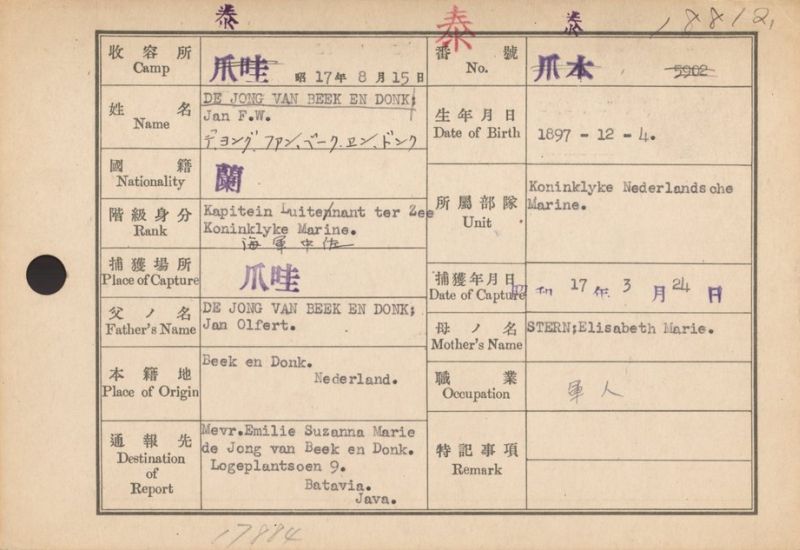 泰
泰
泰
18812,
收容所
Camp
爪哇
昭 17年 8月 15日
番號
No.
爪本
5902
姓名
Name
DE JONG VAN BEEK EN DONK;
Jan F.W.
デ,ヨング,ファン,ベーク,エン,ドンク
生年月日
Date of Birth
1897 - 12 - 4.
國籍
Nationality
蘭
所屬部隊
Unit
Koninklyke Nederlandsche
Marine.
階級身分
Rank
Kapitein Luitennant ter Zee
Koninklyke Marine.
海軍中佐
捕獲場所
Place of Capture
爪哇
捕獲年月日
Date of Capture
昭和 17 年 3 月 24 日
父ノ名
Father's Name
DE JONG VAN BEEK EN DONK;
Jan Olfert.
母ノ名
Mother's Name
STERN;Elisabeth Marie.
本籍地
Place of Origin
Beek en Donk.
Nederland.
職業
Occupation
軍人
通報先
Destination
of
Report
Mevr.Emilie Suzanna Marie
de Jong van Beek en Donk.
Logeplantsoen 9.
Batavia.
Java.
特記事項
Remark
17884